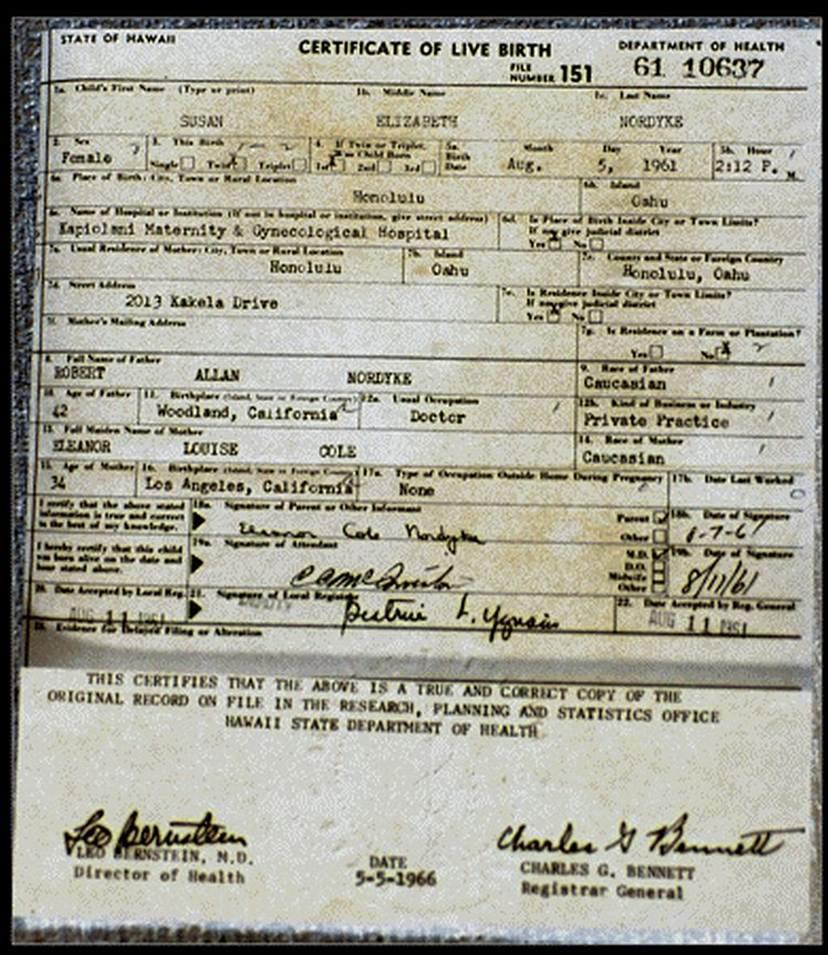 STATE OF HAWAII
CERTIFICATE OF LIVE BIRTH
DEPARTMENT OF HEALTH
FILE NUMBER 151 61 10637
1a. Child's First Name (Type or print) 1b. Middle Name 1c. Last Name
SUSAN ELIZABETH NORDYKE
2. Sex 3. This Birth 4. If Twin or Triplet, Was Child Born 5a. Birth Date Month Day Year 5b. Hour
Female Single Twin Triplet 1st 2nd 3rd Aug. 5, 1961 2:12 P. M.
6a. Place of Birth: City, Town or Rural Location 6b. Island
Honolulu Oahu
6c. Name of Hospital or Institution (If not in hospital or institution, give street address) 6d. Is Place of Birth Inside City or Town Limits?
If no give judicial district
Kapiolani Maternity & Gynecological Hospital Yes No
7a. Usual Residence of Mother: City, Town or Rural Location 7b. Island 7c. County and State or Foreign Country
Honolulu Oahu Honolulu, Oahu
7d. Street Address 7e. Is Residence Inside City or Town Limits?
If no give judicial district
2013 Kakela Drive Yes No
7f. Mother's Mailing Address 7g. Is Residence on a Farm or Plantation?
Yes No
8. Full Name of Father 9. Race of Father
ROBERT ALLAN NORDYKE Caucasian
10. Age of Father 11. Birthplace (Island, State or Foreign Country) 12a. Usual Occupation 12b. Kind of Business or Industry
42 Woodland, California Doctor Private Practice
13. Full Maiden Name of Mother 14. Race of Mother
ELEANOR LOUISE COLE Caucasian
15. Age of Mother 16. Birthplace (Island, State or Foreign Country) 17a. Type of Occupation Outside Home During Pregnancy 17b. Date Last Worked
34 Los Angeles, California None
I certify that the above stated information is true and correct to the best of my knowledge.
18a. Signature of Parent or Other Informant Parent Other 18b. Date of Signature
Eleanor Cole Nordyke 8-7-61
I hereby certify that this child was born alive on the date and hour stated above.
19a. Signature of Attendant M.D. D.O. Midwife Other 19b. Date of Signature
8/11/61
20. Date Accepted by Local Reg. 21. Signature of Local Registrar 22. Date Accepted by Reg. General
AUG 11 1961 AUG 11 1961
23. Evidence for Delayed Filing or Alteration
THIS CERTIFIES THAT THE ABOVE IS A TRUE AND CORRECT COPY OF THE
ORIGINAL RECORD ON FILE IN THE RESEARCH, PLANNING AND STATISTICS OFFICE
HAWAII STATE DEPARTMENT OF HEALTH
Leo Bernstein Charles G Bennett
LEO BERNSTEIN, M.D. DATE CHARLES G. BENNETT
Director of Health 5-5-1966 Registrar General